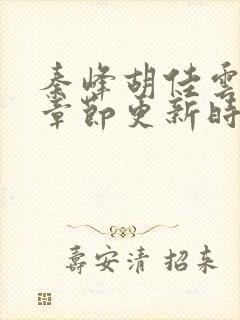 秦峰胡佳雲
章節更新時
壽安清 招来